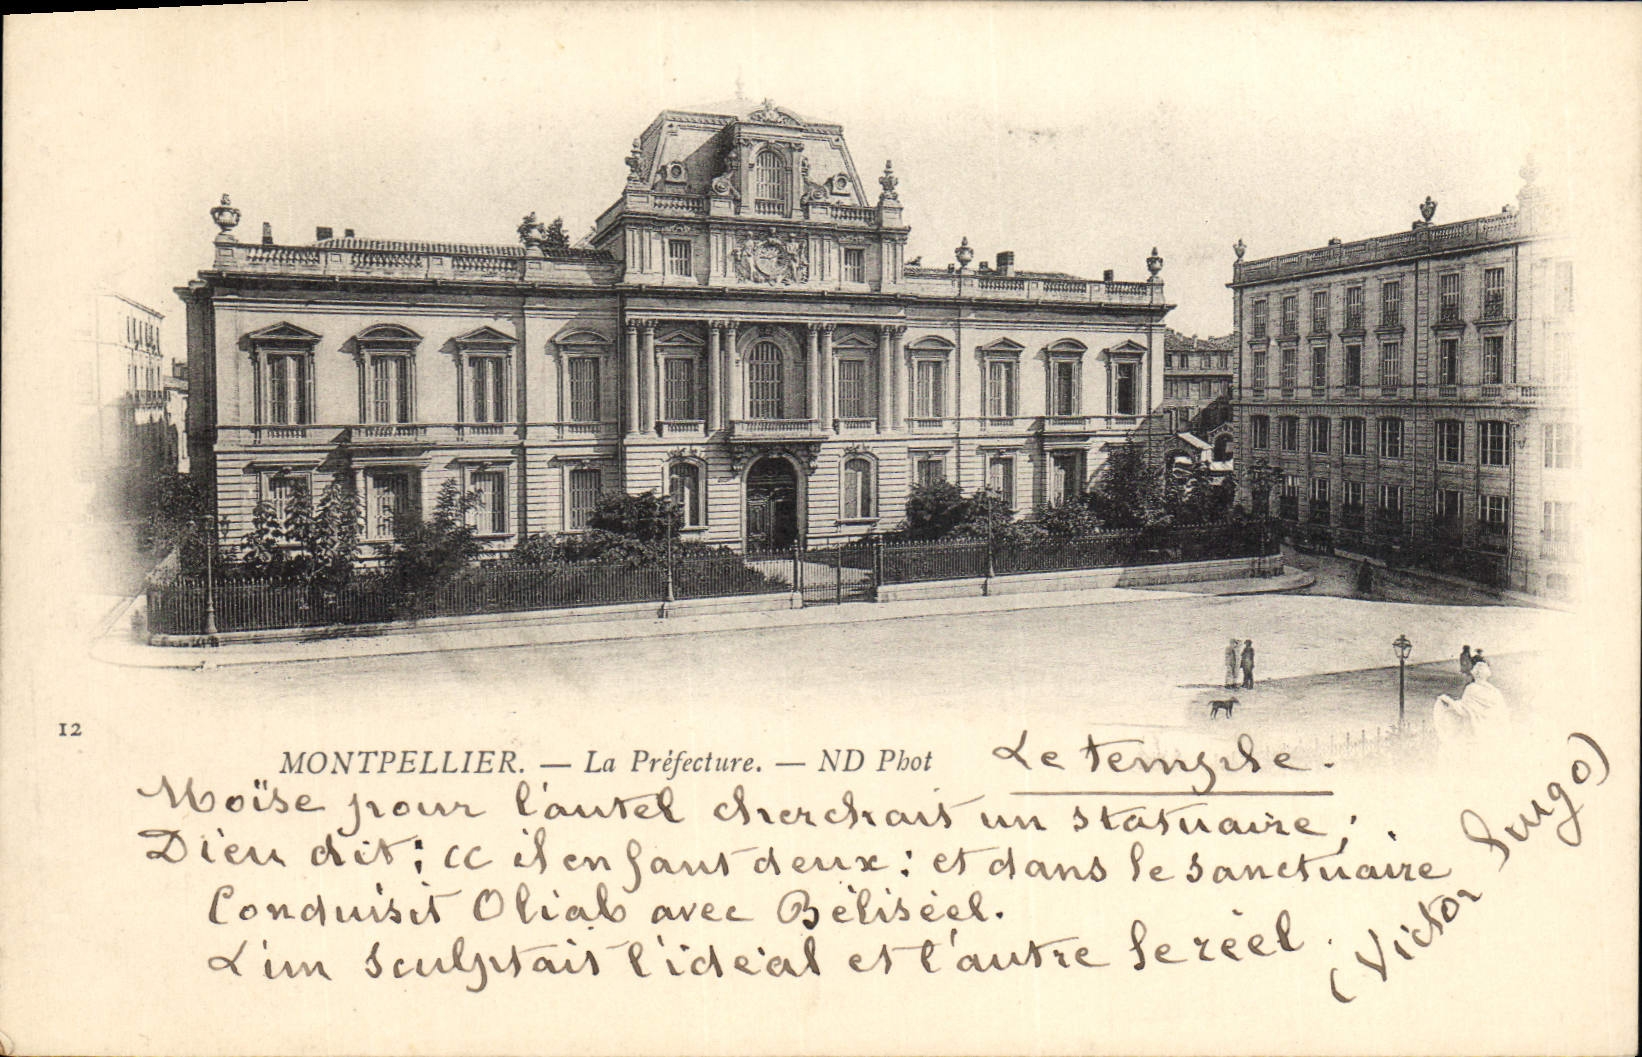 12
MONTPELLIER. — La Préfecture. — ND Phot
Le temple.
Moïse pour l'autel cherchait un statuaire;
Dieu dit: « il en faut deux: et dans le sanctuaire
Conduisit Oliab avec Béliséel.
L'un sculptait l'idéal et l'autre le réel.
(Victor Hugo)